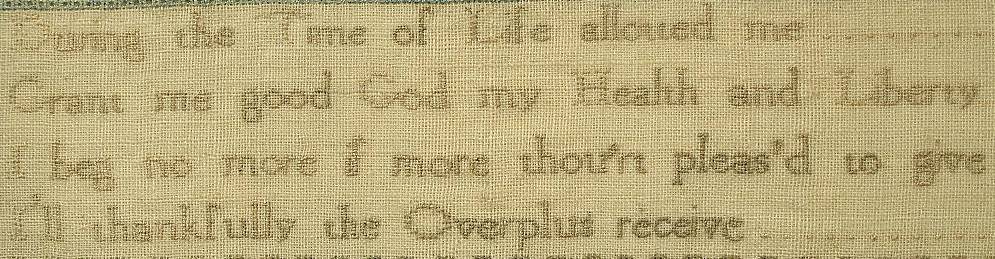 During the Time of Life alloued me
Grant me good God my Health and Liberty
I beg no more if more thou'rt pleas'd to give
I'll thankfully the Overplus receive